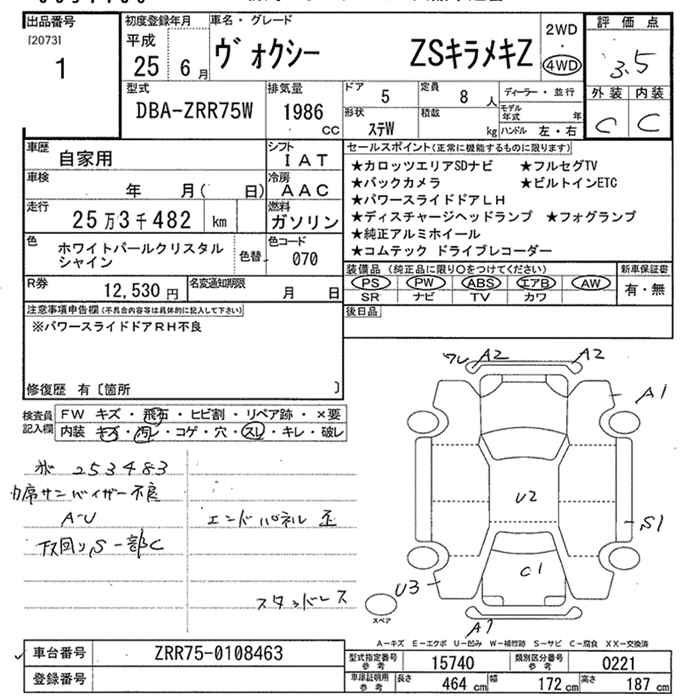 出品番号 初度登録年月 車名・グレード 評価点
[2073] 平成 ヴォクシー ZSキラメキZ 2WD ・ 4WD 3.5
1 25年 6月
型式 排気量 ドア 5 定員 8人 ディーラー・並行 外装 内装
DBA-ZRR75W 1986 CC 形状 ステW 積載 kg モデル年式 年 ハンドル 左・右 C C
車歴 自家用 シフト IAT セールスポイント(正常に機能するものに限ります)
車検 年 月( 日) 冷房 AAC ★カロッツエリアSDナビ ★フルセグTV
★バックカメラ ★ビルトインETC
★パワースライドドアLH
走行 25万3千482 km 燃料 ガソリン ★ディスチャージヘッドランプ ★フォグランプ
★純正アルミホイール
色 ホワイトパールクリスタルシャイン 色替 色コード 070 ★コムテック ドライブレコーダー
R券 12,530円 名変通知期限 月 日 装備品(純正品に限り○をつけてください) 新車保証書
PS PW ABS エアB AW 有・無
SR ナビ TV カワ
注意事項申告欄(不具合内容等は具体的に記入して下さい) 後日品
※パワースライドドアRH不良
修復歴 有〔箇所 〕
検査員記入欄 FW キズ・飛石・ヒビ割・リペア跡・×要
内装 キズ・汚レ・コゲ・穴・スレ・キレ・破レ
253483
席サンバイザー不良
A-U エンドパネル 歪
下回りS一部C
スタッドレス
ワレ A2 A2
A1
U2
S1
C1
U3
スペア
A1
A-キズ E-エクボ U-凹み W-補修跡 S-サビ C-腐食 XX-交換済
車台番号 ZRR75-0108463 型式指定番号 参考 15740 類別区分番号 参考 0221
登録番号 車庫証明用 参考 長さ 464 cm 幅 172 cm 高さ 187 cm